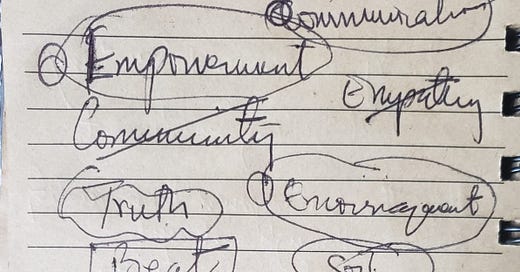 Communication
Empowerment
Empathy
Community
Truth Encouragement